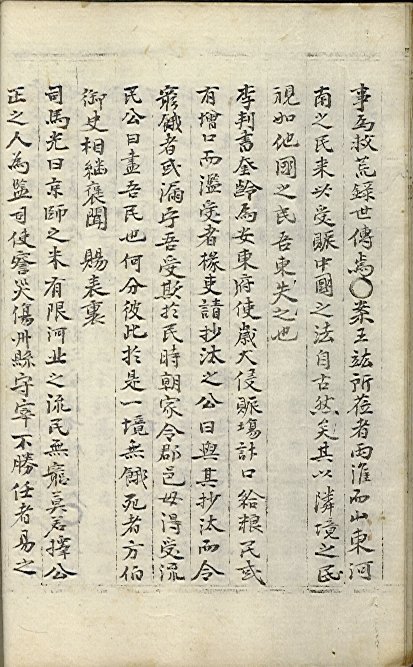 事爲救荒錄世傳焉○案王竑所莅者兩淮而山東河
南之民来以受賑中國之法自古然矣其以隣境之民
視如他國之民吾東失之也
李判書奎齡爲安東府使歲大侵賑塲計口給粮民或
有增口而濫受者掾吏請抄汰之公曰與其抄汰而令
窮餓者或漏寧吾受欺於民時朝家令郡邑毋得受流
民公曰盡吾民也何分彼此於是一境無餓死者方伯
御史相継褒聞 賜表裏
司馬光曰京師之米有限河北之流民無窮莫若擇公
正之人為監司使察災傷州縣守宰不勝任者易之